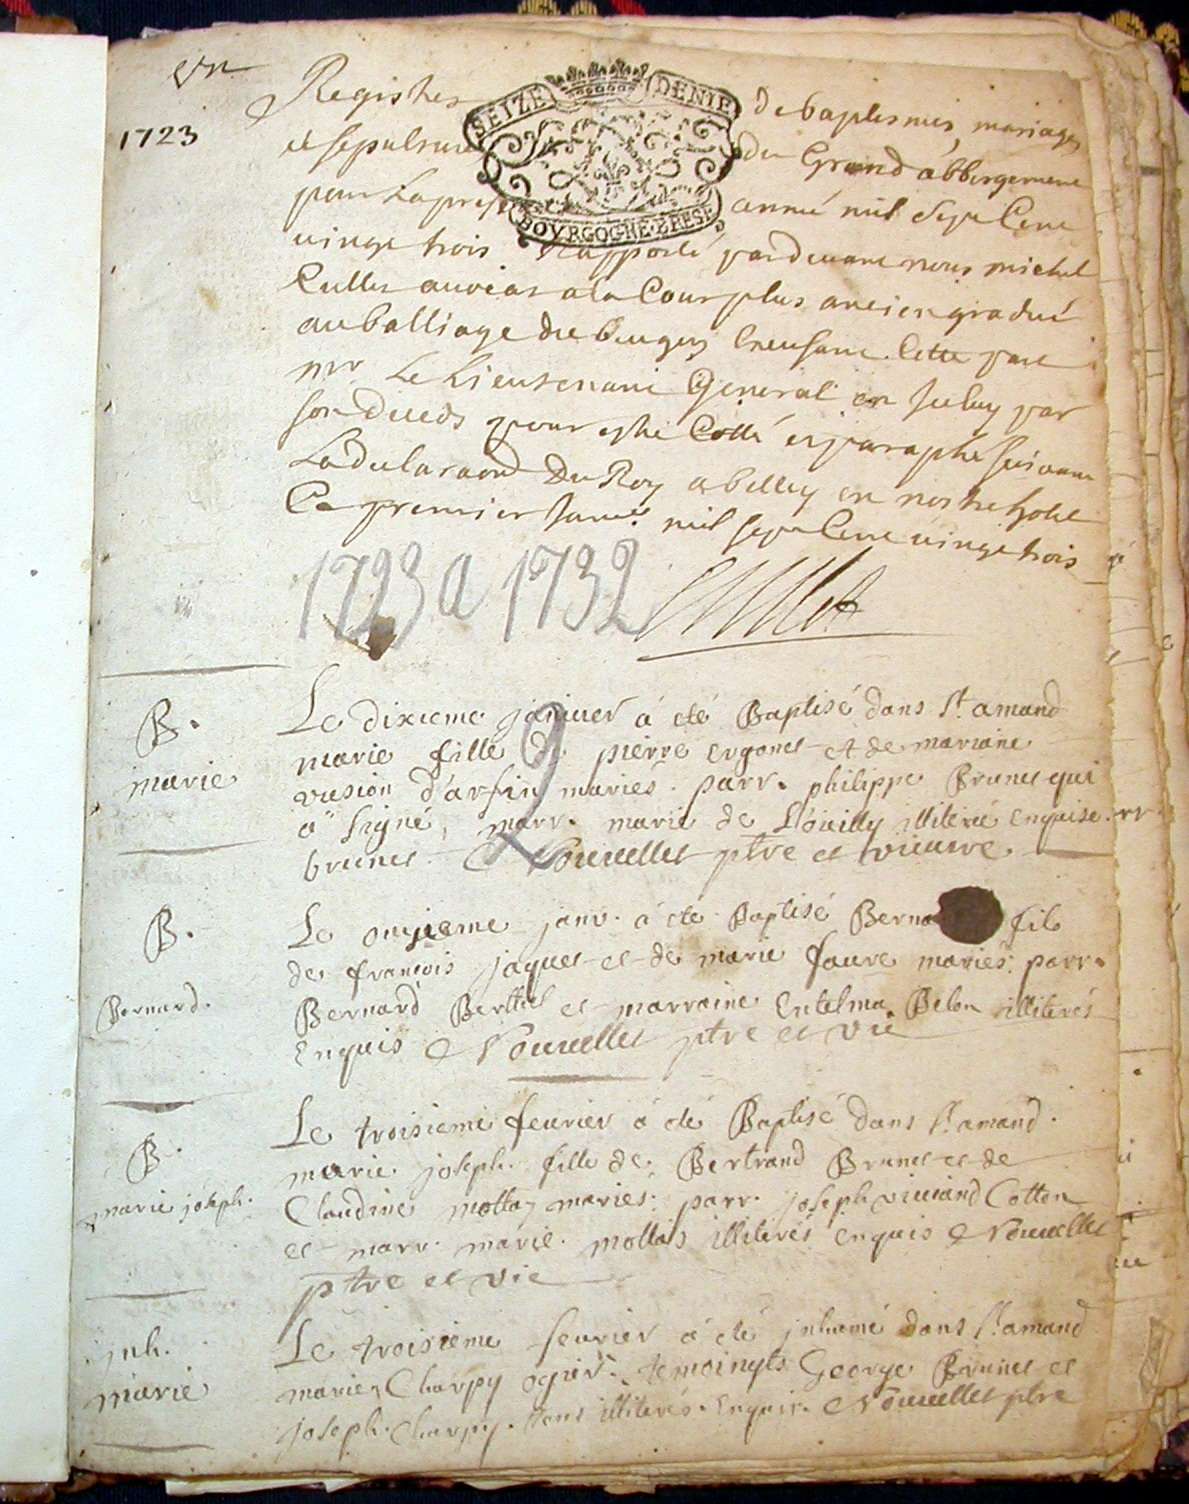 Vn
1723
Registres de baptesmes, mariages
SEIZE DENIE
BOVRGOGNE·BRESE
et sepulture du Grand abbergement
pour La presente année mil sept Cent
vingt trois Rapporté pardevant nous michel
Cullet auocat a la Cour plus ancien gradué
au balliage de bugey en cette part
mr Le Lieutenant General par
pour estre Cotté et paraphé suivant
La declaraond Du Roy a belley en nostre hotel
Ce premier Janvr mil sept Cent vingt trois
1723 a 1732
Cullet
B.
marie
Le dixieme januier á eté Baptisé dans St. amand
marie fille de pierre ergones et de mariane
d'arfin mariés. parr. philippe Brunet qui
á signé, marr. marie de Loüilly illiteré enquise.
brunet. Nouuellet ptre et vicaire.
2
B.
Bernard.
Le onzieme janv. á eté Baptisé fils
de francois jaquet et de marie faure mariés. parr.
Bernard Berthet et marraine Entelma Belon illiterés
Enquis Nouuellet ptre et vic
B.
marie joseph.
Le troisieme feurier á eté Baptisé dans St. amand.
marie joseph fille de Bertrand Brunet et de
Claudine mollaz mariés. parr. joseph Cotton
et marr. marie mollas illiterés enquis Nouuellet
ptre et vic
inh.
marie
Le troisieme feurier á eté inhumé dans St. amand
marie Charpy ogier. temoingts George Brunet et
joseph Charpy. tous illiterés. Enquis. Nouuellet ptre